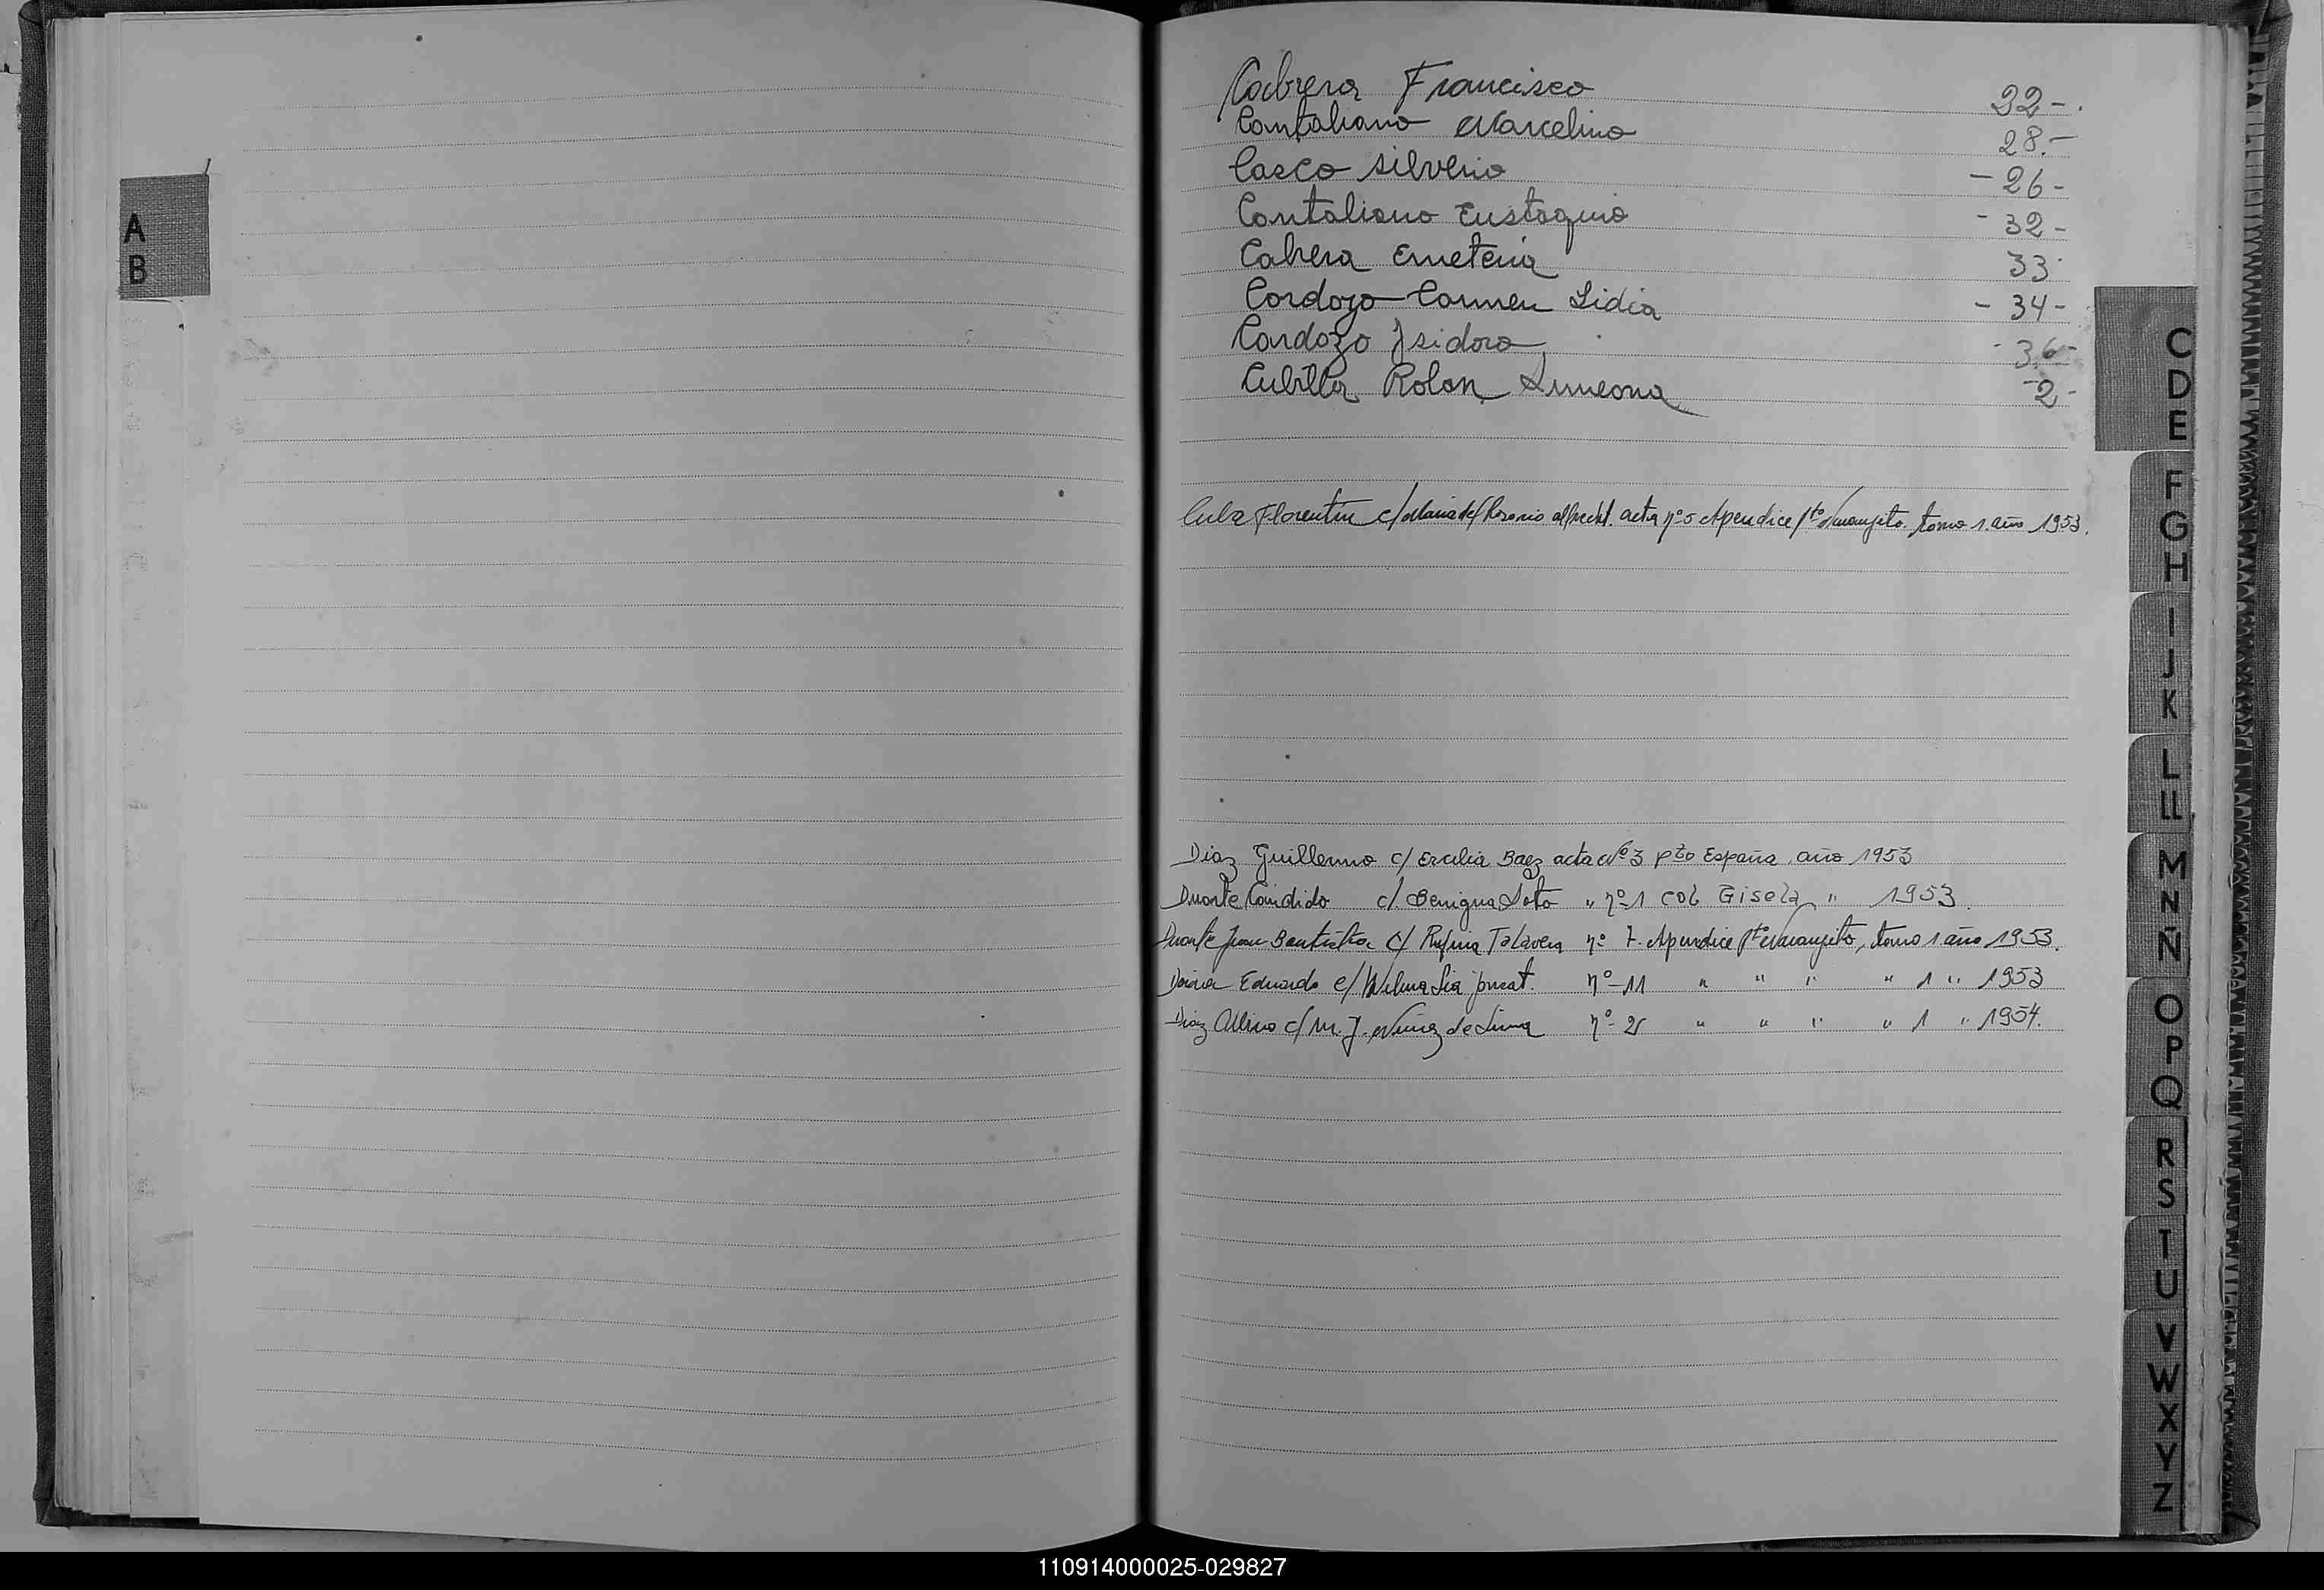 A
B
Cabrera Francisco 22-.
Cantaliano Marcelino 28.-
Casco Silverio - 26-
Cantaliano Eustaquio - 32-
Cabrera Emeteria 33
Cardozo Carmen Lidia - 34-
Cardozo Isidora - 36-
Cubilla Rolon Simeona - 2-
Florentin c/ Maria del Rosario acta nº 5 Apendice Pto Naranjito. tomo 1. año 1953.
Diaz Guillermo c/ Ercilia Baez acta Nº 3 Pto España, año 1953
Duarte Candido c/ Benigna Soto " nº 1 Col Gisela " 1953.
Duarte Juan Bautista c/ Rufina Talavera nº 7. Apendice Pto Naranjito, tomo 1 año 1953.
Eduardo c/ nº 11 " " " " 1 " 1953
Diaz c/ M. J. Nuñez de Lima nº 2 " " " " 1 " 1954.
C
D
E
F
G
H
I
J
K
L
LL
M
N
Ñ
O
P
Q
R
S
T
U
V
W
X
Y
Z
110914000025-029827